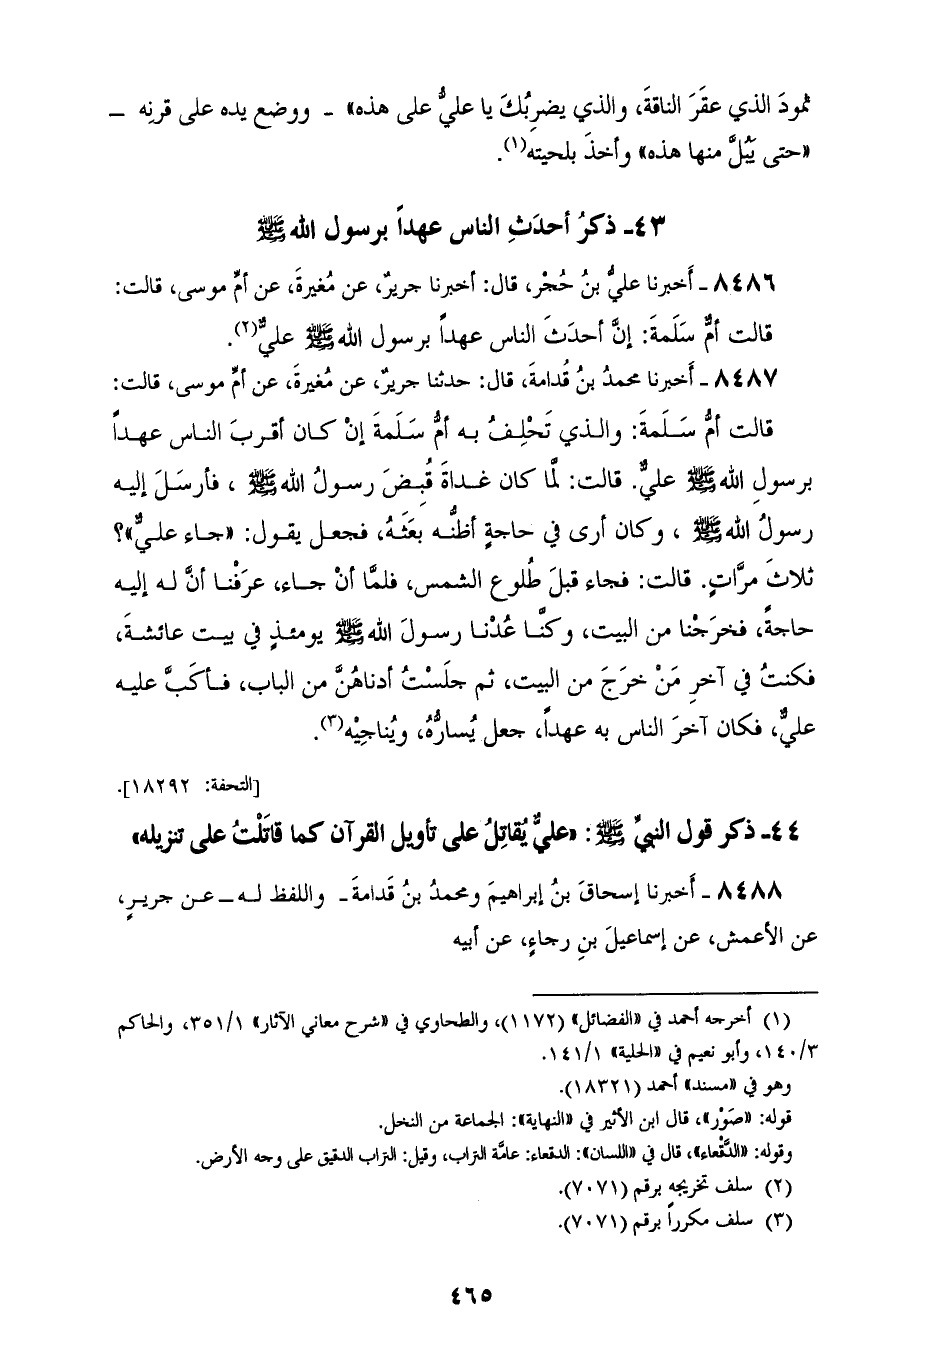 ثمودَ الذي عقَرَ الناقةَ، والذي يضرِبُكَ يا عليُّ على هذه» ـ ووضع يده على قرنِه ـ
«حتى يُبَلَّ منها هذه» وأخذَ بلحيته(١).
٤٣ـ ذكرُ أحدَثِ الناس عهداً برسول الله ﷺ
٨٤٨٦ ـ أَخبرنا عليُّ بنُ حُجْر، قال: أخبرنا جريرٌ، عن مُغيرةَ، عن أمِّ موسى، قالت:
قالت أمُّ سَلَمةَ: إنَّ أحدَثَ الناس عهداً برسول الله ﷺ عليٌّ(٢).
٨٤٨٧ ـ أَخبرنا محمدُ بنُ قُدامةَ، قال: حدثنا جريرٌ، عن مُغيرةَ، عن أمِّ موسى، قالت:
قالت أمُّ سَلَمةَ: والذي تَحْلِفُ به أمُّ سَلَمةَ إنْ كان أقربَ الناس عهداً
برسولِ الله ﷺ عليٌّ. قالت: لمَّا كان غداةَ قُبِضَ رسولُ الله ﷺ ، فأرسَلَ إليه
رسولُ الله ﷺ ، وكان أرى في حاجةٍ أظنُّه بعَثَهُ، فجعل يقول: «جاء عليٌّ»؟
ثلاثَ مرَّاتٍ. قالت: فجاء قبلَ طُلوع الشمس، فلمَّا أنْ جاء، عرَفْنا أنَّ له إليه
حاجةً، فخرَجْنا من البيت، وكنَّا عُدْنا رسولَ الله ﷺ يومئذٍ في بيت عائشةَ،
فكنتُ في آخرِ مَنْ خرَجَ من البيت، ثم جلَسْتُ أدناهُنَّ من الباب، فأكَبَّ عليه
عليٌّ، فكان آخرَ الناس به عهداً، جعل يُسارُّهُ، ويُناجِيْه(٣).
[التحفة: ١٨٢٩٢].
٤٤ـ ذكر قول النبيِّ ﷺ: «عليٌّ يُقاتِلُ على تأويل القرآن كما قاتَلْتُ على تنزيله»
٨٤٨٨ ـ أَخبرنا إسحاقَ بنُ إبراهيمَ ومحمدُ بنُ قدامةَ ـ واللفظ له ـ عن جريرٍ،
عن الأعمش، عن إسماعيلَ بنِ رجاءٍ، عن أبيه
(١) أخرجه أحمد في «الفضائل» (١١٧٢)، والطحاوي في «شرح معاني الآثار» ٣٥١/١، والحاكم
١٤٠/٣، وأبو نعيم في «الحلية» ١٤١/١.
وهو في «مسند» أحمد (١٨٣٢١).
قوله: «صَوْر»، قال ابن الأثير في «النهاية»: الجماعة من النخل.
وقوله: «الدَّقْعاء»، قال في «اللسان»: الدقعاء: عامَّة التراب، وقيل: التراب الدقيق على وجه الأرض.
(٢) سلف تخريجه برقم (٧٠٧١).
(٣) سلف مكرراً برقم (٧٠٧١).
٤٦٥